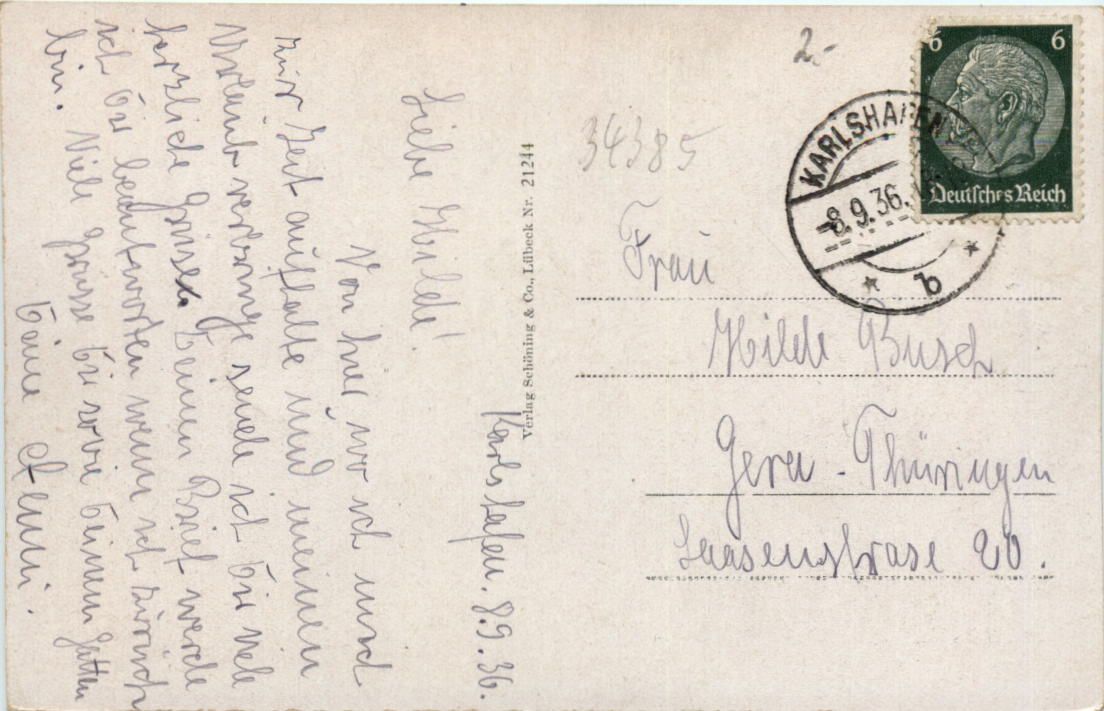 Karlshafen. 8.9.36.
Liebe Hilde!
Von hier wo ich mich
zur Zeit aufhalte und meinen
Urlaub verbringe sende ich Dir viele
herzliche Grüsse. Deinen Brief werde
ich Dir beantworten wenn ich zurück
bin. Viele Grüsse Dir sowie Deinem Gatten
Deine
Verlag Schöning & Co., Lübeck Nr. 21244
2.-
34385
6 6
Deutsches Reich
KARLSHAFEN
-8.9.36.
b
Frau
Hilde Busch
Gera - Thüringen
Laasenstrase 20.